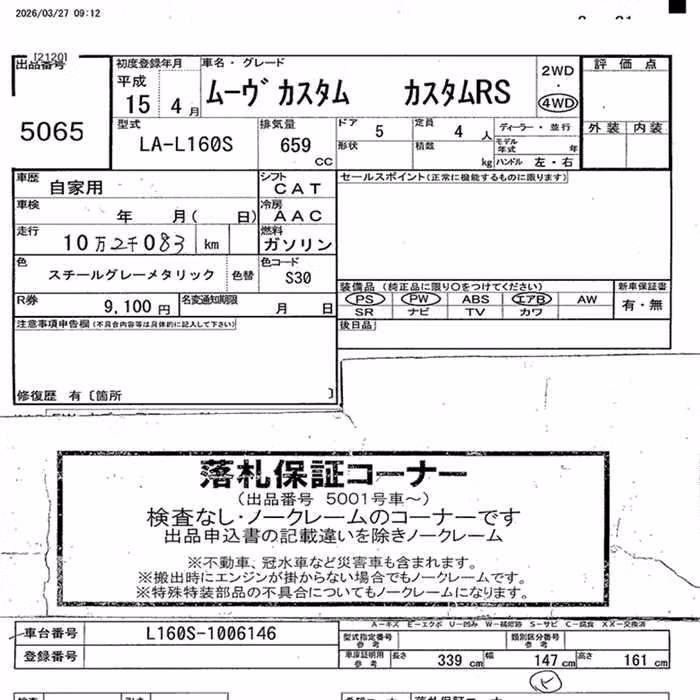 2026/03/27 09:12
[2120]
出品番号
5065
初度登録年月
平成
15 4 月
車名・グレード
ムーヴ カスタム カスタムRS
2WD
・
4WD
評価点
外装 内装
型式
LA-L160S
排気量
659
CC
ドア 5
定員 4 人
ディーラー・並行
形状
積数
kg
モデル年式 年
ハンドル 左・右
車歴
自家用
シフト
CAT
セールスポイント(正常に機能するものに限ります)
車検
年 月( 日)
冷房
AAC
走行
10万2千083 km
燃料
ガソリン
色
スチールグレーメタリック
色替
色コード
S30
装備品(純正品に限り○をつけてください)
新車保証書
PS PW ABS エアB AW
有・無
SR ナビ TV カワ
R券
9,100 円
名変通知期限
月 日
後日品
注意事項申告欄(不具合内容等は具体的に記入して下さい)
修復歴 有〔箇所 〕
落札保証コーナー
(出品番号 5001号車~)
検査なし・ノークレームのコーナーです
出品申込書の記載違いを除きノークレーム
※不動車、冠水車など災害車も含まれます。
※搬出時にエンジンが掛からない場合でもノークレームです。
※特殊特装部品の不具合についてもノークレームになります。
A-キズ E-エクボ U-凹み W-補修跡 S-サビ C-腐食 XX-交換済
車台番号
L160S-1006146
型式指定番号
参考
類別区分番号
参考
登録番号
車庫証明用
参考
長さ 339 cm
幅 147 cm
高さ 161 cm